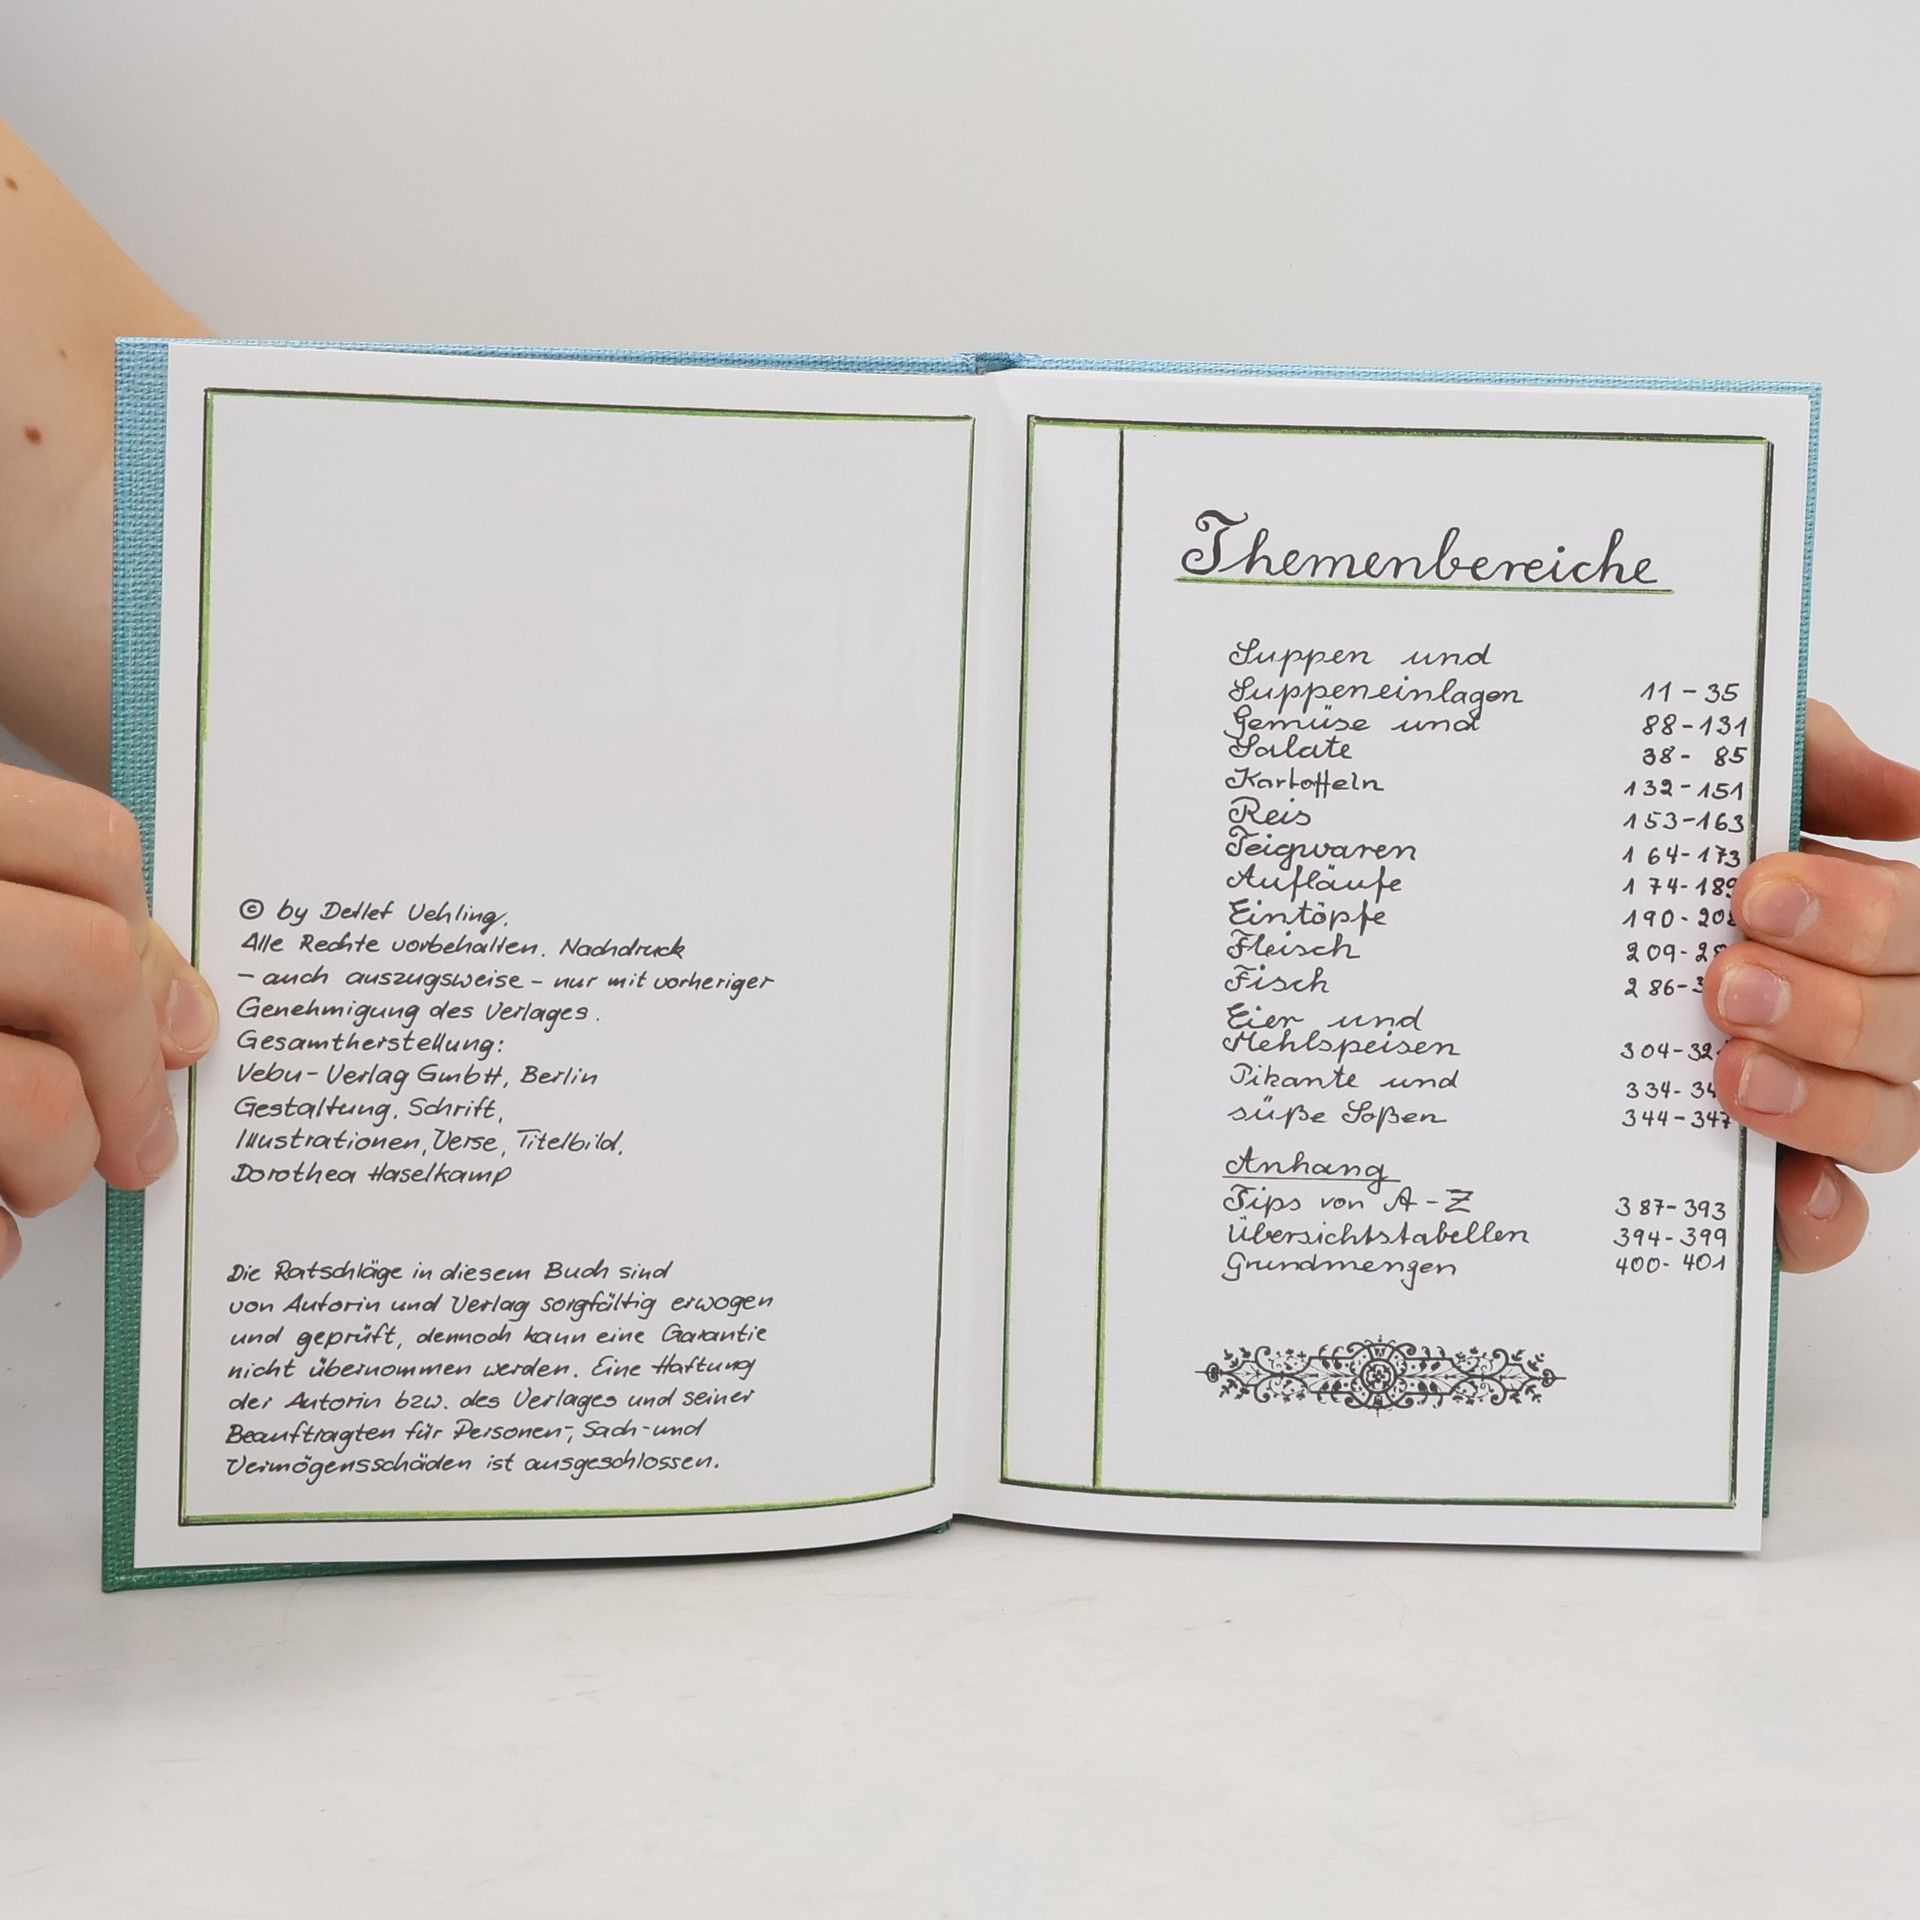 © by Detlef Uehling.
Alle Rechte vorbehalten. Nachdruck
– auch auszugsweise – nur mit vorheriger
Genehmigung des Verlages.
Gesamtherstellung:
Vebu-Verlag GmbH, Berlin
Gestaltung, Schrift,
Illustrationen, Verse, Titelbild,
Dorothea Haselkamp
Die Ratschläge in diesem Buch sind
von Autorin und Verlag sorgfältig erwogen
und geprüft, dennoch kann eine Garantie
nicht übernommen werden. Eine Haftung
der Autorin bzw. des Verlages und seiner
Beauftragten für Personen-, Sach- und
Vermögensschäden ist ausgeschlossen.
Themenbereiche
Suppen und
Suppeneinlagen 11 - 35
Gemüse und 88-131
Salate 38- 85
Kartoffeln 132-151
Reis 153-163
Teigwaren 164-173
Aufläufe 174-189
Eintöpfe 190-208
Fleisch 209-
Fisch 286-
Eier und
Mehlspeisen 304-
Pikante und 334-
süße Soßen 344-347
Anhang
Tips von A - Z 387-393
Übersichtstabellen 394-399
Grundmengen 400-401